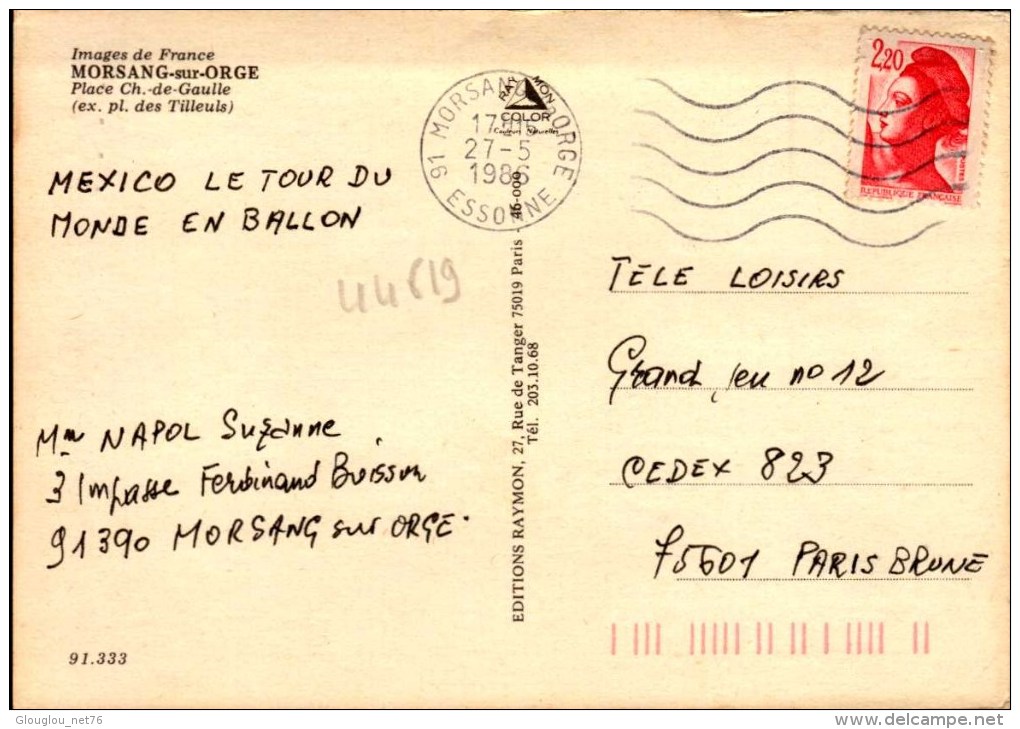 Images de France
MORSANG-sur-ORGE
Place Ch.-de-Gaulle
(ex. pl. des Tilleuls)
MEXICO LE TOUR DU
MONDE EN BALLON
44619
Mme NAPOL Suzanne
3 Impasse Ferdinand Buisson
91390 MORSANG sur ORGE
91.333
91 MORSANG S/ORGE
17H15
27-5
1986
ESSONNE
RAYMON
COLOR
Couleurs Naturelles
EDITIONS RAYMON, 27, Rue de Tanger 75019 Paris - 46-009
Tél. 203.10.68
2,20
POSTES
REPUBLIQUE FRANÇAISE
TÉLE LOISIRS
Grand jeu no 12
CEDEX 823
75601 PARIS BRUNE
Glouglou_net76
delcampe.net